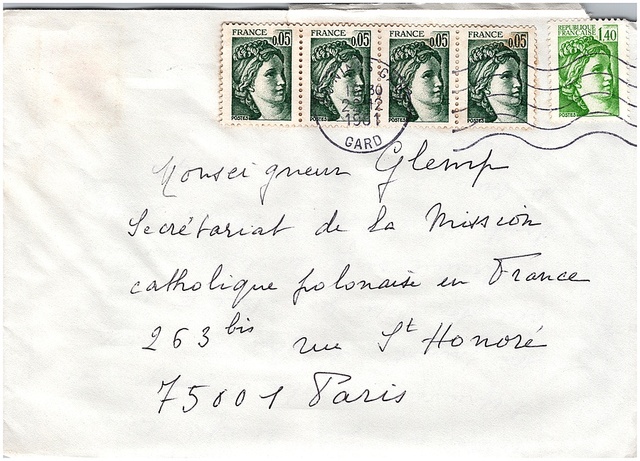 FRANCE 0.05 FRANCE 0.05 FRANCE 0.05 FRANCE 0.05
REPUBLIQUE FRANCAISE 1,40
POSTES POSTES POSTES POSTES POSTES
1981
GARD
Monseigneur Glemp
Secrétariat de la Mission
catholique polonaise en France
263 bis rue St Honoré
75001 Paris